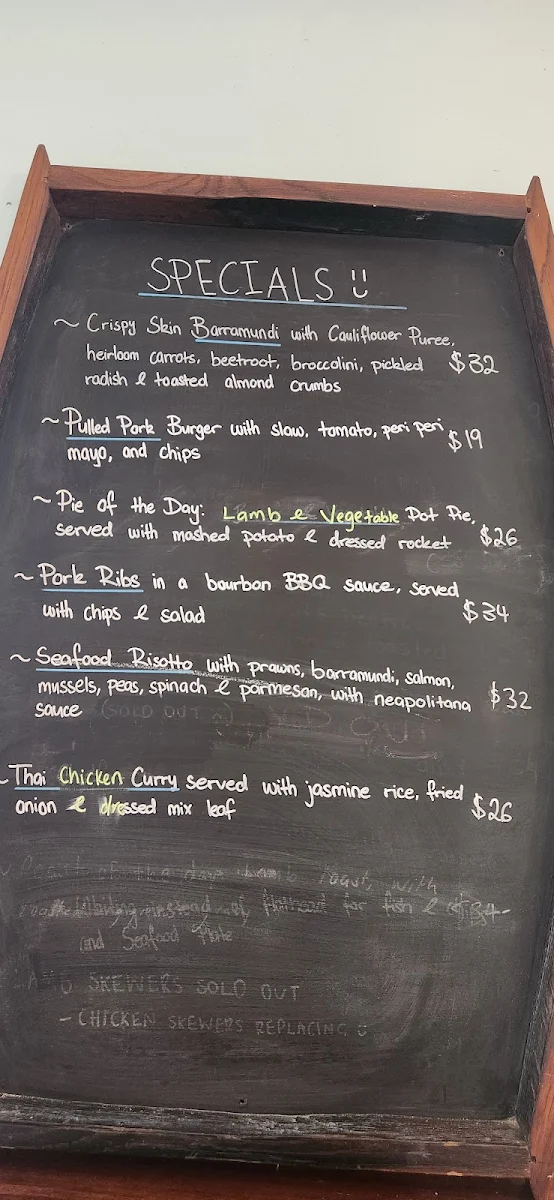 SPECIALS :)
~ Crispy Skin Barramundi with Cauliflower Puree,
heirloom carrots, beetroot, broccolini, pickled $32
radish & toasted almond crumbs
~ Pulled Pork Burger with slaw, tomato, peri peri $19
mayo, and chips
~ Pie of the Day: Lamb & Vegetable Pot Pie,
served with mashed potato & dressed rocket $26
~ Pork Ribs in a bourbon BBQ sauce, served
with chips & salad $34
~ Seafood Risotto with prawns, barramundi, salmon,
mussels, peas, spinach & parmesan, with neapolitana $32
sauce (SOLD OUT
~ Thai Chicken Curry served with jasmine rice, fried
onion & dressed mix leaf $26
of the day: Lamb roast, with
Whiting instead of flathead for fish &
and Seafood Plate
SKEWERS SOLD OUT
- CHICKEN SKEWERS REPLACING :)